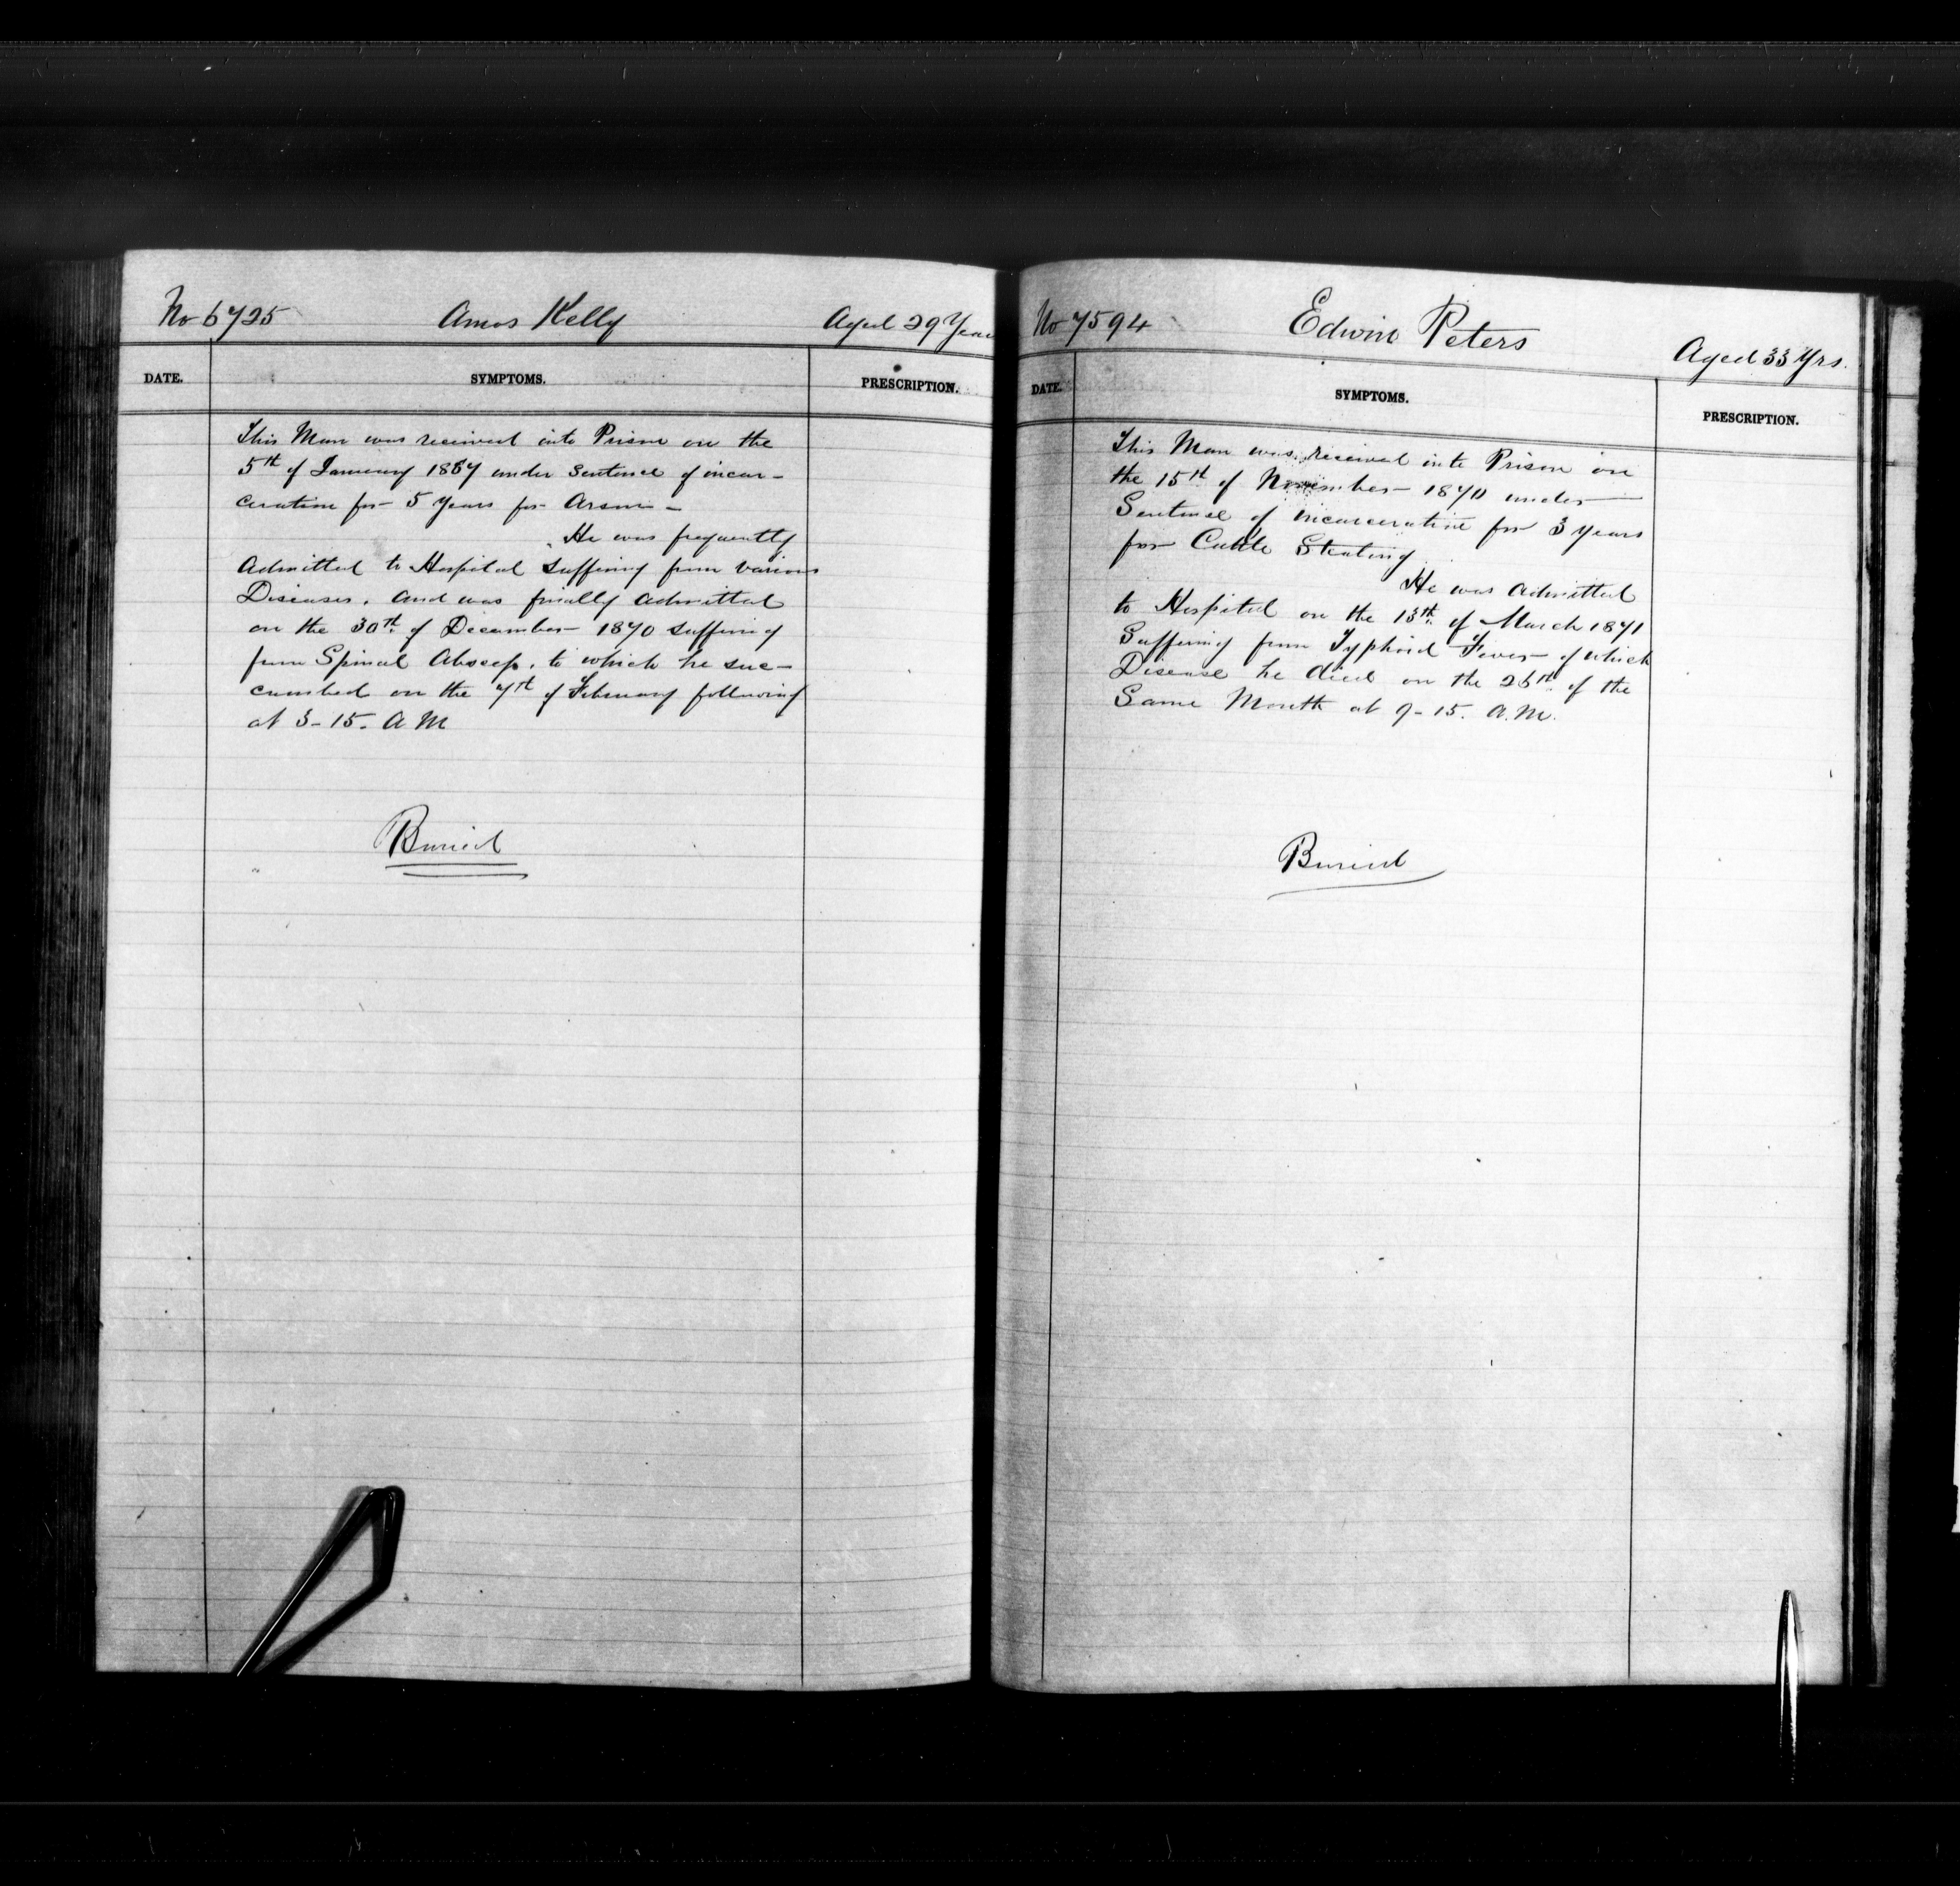 No 6725 Amos Kelly Aged 29 Years
DATE. SYMPTOMS. PRESCRIPTION.
This Man was received into Prison on the
5th of January 1867 under Sentence of incar-
ceration for 5 Years for Arson -
He was frequently
Admitted to Hospital Suffering from various
Diseases. And was finally Admitted
on the 30th of December 1870 Suffering
from Spinal Abscess. to which he suc-
cumbed on the 7th of February following
at 3-15. A M
Buried
No 7594 Edwin Peters Aged 33 Yrs.
DATE. SYMPTOMS. PRESCRIPTION.
This Man was received into Prison on
the 15th of November 1870 under
Sentence of incarceration for 3 Years
for Cattle Stealing
He was Admitted
to Hospital on the 13th of March 1871
Suffering from Typhoid Fever of which
Disease he died on the 26th of the
Same Month at 9-15. A.M.
Buried